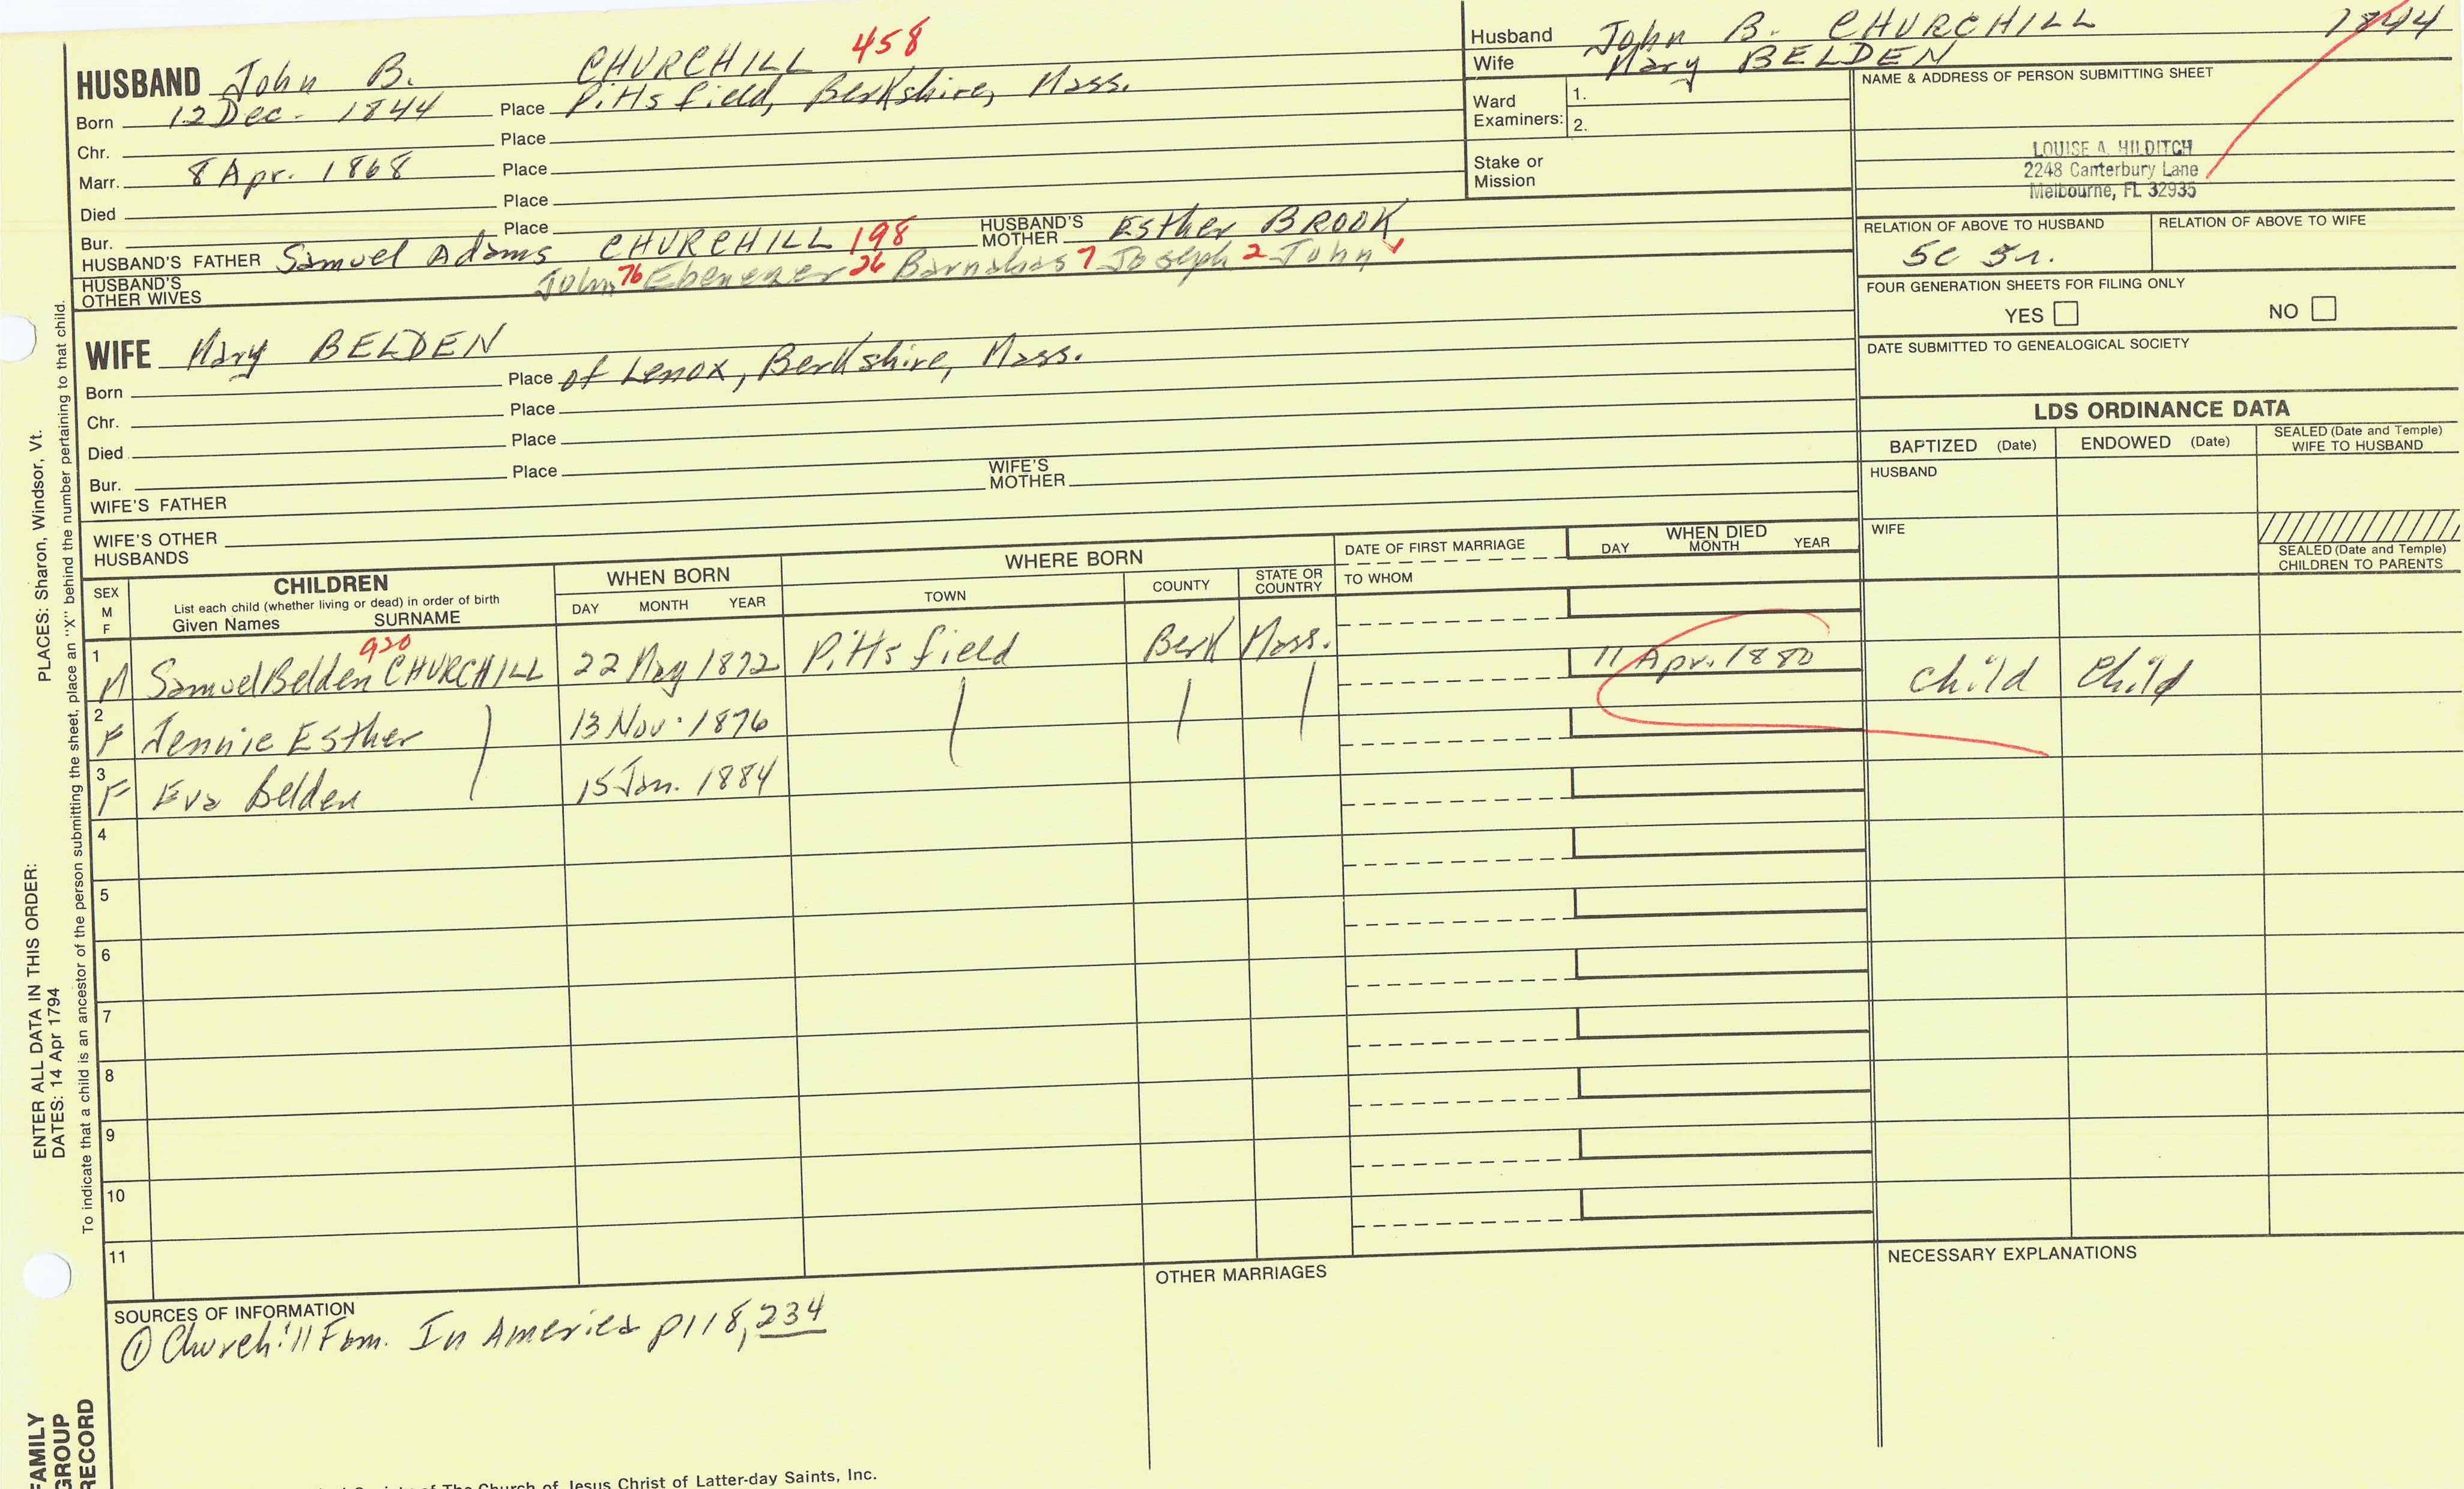 HUSBAND John B. CHURCHILL 458
Born 12 Dec. 1844 Place Pittsfield, Berkshire, Mass.
Chr. Place
Marr. 8 Apr. 1868 Place
Died Place
Bur. Place
HUSBAND'S FATHER Samuel Adams CHURCHILL 198 HUSBAND'S MOTHER Esther BROOK
John 76 Ebenezer 26 Barnabas 7 Joseph 2 John 1
HUSBAND'S OTHER WIVES
WIFE Mary BELDEN
Born Place of Lenox, Berkshire, Mass.
Chr. Place
Died Place
Bur. Place
WIFE'S FATHER WIFE'S MOTHER
WIFE'S OTHER HUSBANDS
Husband John B. CHURCHILL 1844
Wife Mary BELDEN
Ward Examiners: 1.
2.
Stake or Mission
NAME & ADDRESS OF PERSON SUBMITTING SHEET
LOUISE A. HILDITCH
2248 Canterbury Lane
Melbourne, FL 32935
RELATION OF ABOVE TO HUSBAND RELATION OF ABOVE TO WIFE
5c 5r.
FOUR GENERATION SHEETS FOR FILING ONLY
YES NO
DATE SUBMITTED TO GENEALOGICAL SOCIETY
LDS ORDINANCE DATA
BAPTIZED (Date) ENDOWED (Date) SEALED (Date and Temple) WIFE TO HUSBAND
HUSBAND
WIFE
SEALED (Date and Temple) CHILDREN TO PARENTS
SEX M F
CHILDREN
List each child (whether living or dead) in order of birth
Given Names SURNAME
WHEN BORN
DAY MONTH YEAR
WHERE BORN
TOWN COUNTY STATE OR COUNTRY
DATE OF FIRST MARRIAGE
TO WHOM
WHEN DIED
DAY MONTH YEAR
920
1 M Samuel Belden CHURCHILL 22 May 1872 Pittsfield Berk Mass. 11 Apr. 1880 child child
2 F Jennie Esther 13 Nov. 1876
3 F Eva Belden 15 Jan. 1884
4
5
6
7
8
9
10
11
SOURCES OF INFORMATION
① Churchill Fam. In America p118, 234
OTHER MARRIAGES
NECESSARY EXPLANATIONS
of The Church of Jesus Christ of Latter-day Saints, Inc.
ENTER ALL DATA IN THIS ORDER:
DATES: 14 Apr 1794 PLACES: Sharon, Windsor, Vt.
To indicate that a child is an ancestor of the person submitting the sheet, place an "X" behind the number pertaining to that child.
FAMILY
GROUP
RECORD